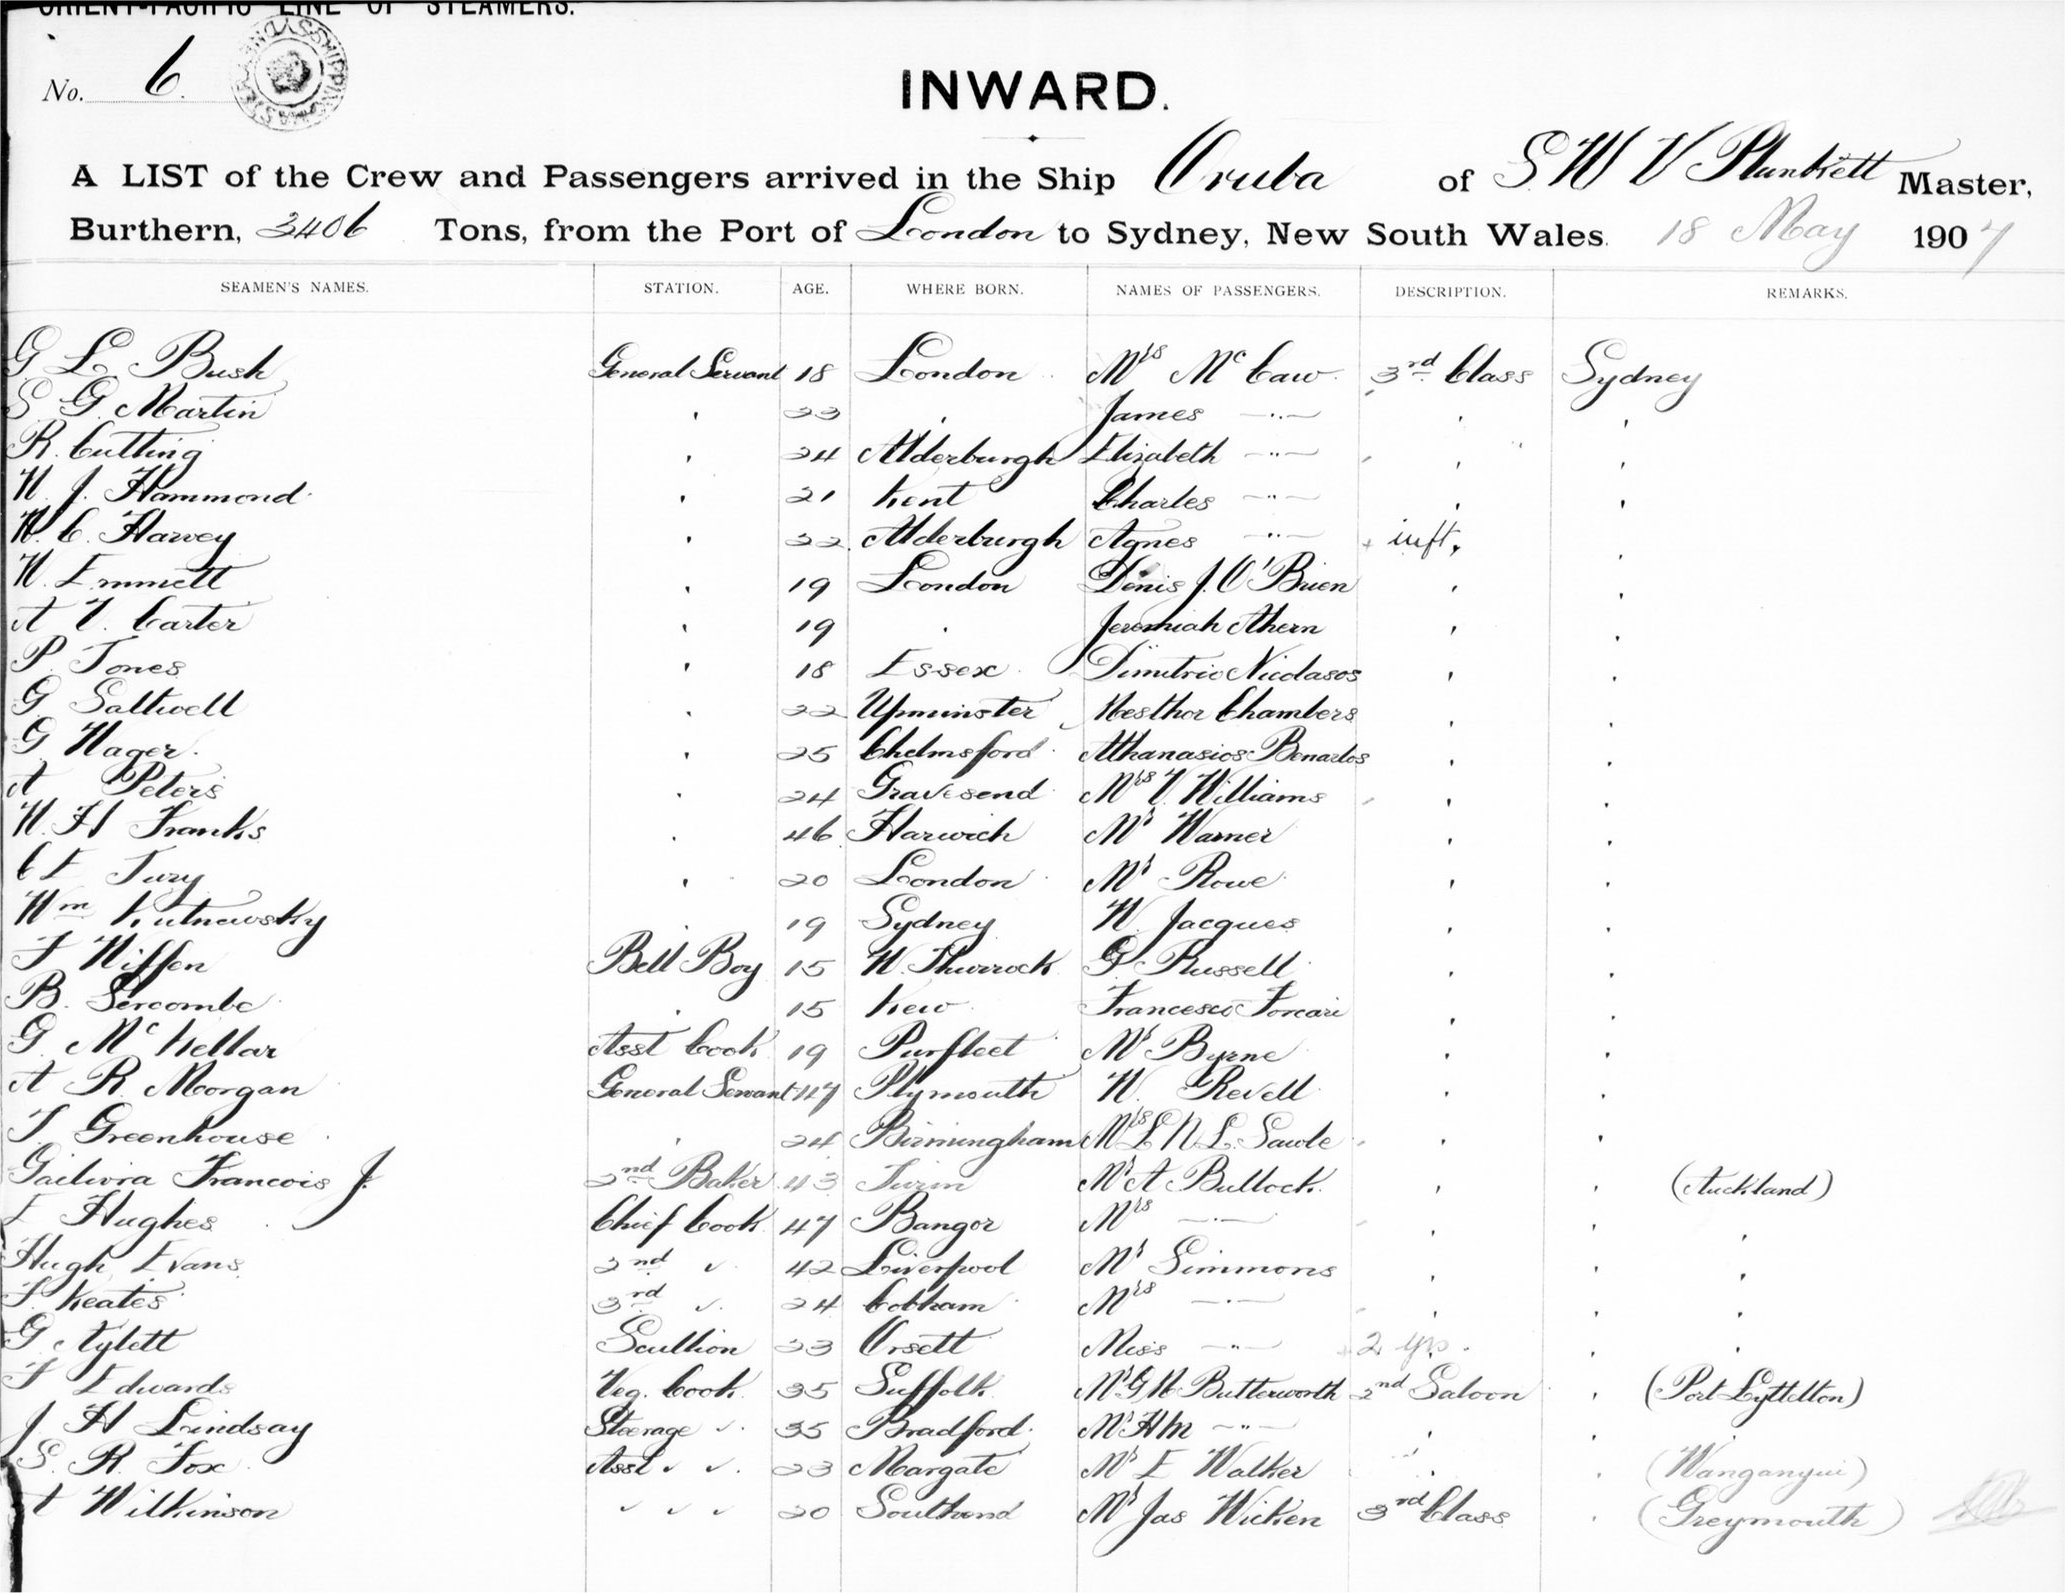 ORIENT-PACIFIC LINE OF STEAMERS.
No. 6.
INWARD.
A LIST of the Crew and Passengers arrived in the Ship Oruba of S. W V Plunkett Master,
Burthern, 3406 Tons, from the Port of London to Sydney, New South Wales. 18 May 1907
SEAMEN'S NAMES. STATION. AGE. WHERE BORN. NAMES OF PASSENGERS. DESCRIPTION. REMARKS.
G L Bush General Servant 18 London Mrs McCaw 3rd Class Sydney
S G Martin " 23 " James —"— " "
R. Cutting " 24 Alderburgh Elizabeth —"— " "
W. J. Hammond " 21 Kent Charles —"— " "
W. C. Harvey " 22 Alderburgh Agnes —"— inft. "
W. Emmett " 19 London Denis J. O'Brien " "
A V. Carter " 19 " Jeremiah Ahern " "
P. Jones " 18 Essex Dimitrio Nicolasos " "
G Saltwell " 22 Upminster Hesthor Chambers " "
G Wager " 25 Chelmsford Athanasios Benardos " "
A Peters " 24 Gravesend Mrs V. Williams " "
W. H Franks " 46 Harwich Mr Warner " "
C E Jury " 20 London Mr Rowe " "
Wm Kutnewsky " 19 Sydney W. Jacques " "
F Wiffen Bell Boy 15 W. Thurrock G. Russell " "
B. Sercombe " 15 Kew Francesco Forcari " "
G McKellar Asst Cook 19 Purfleet Mr Byrne " "
A R. Morgan General Servant 47 Plymouth W. Revell " "
T. Greenhouse " 24 Birmingham Mrs L N L. Sawle " "
Francois J. 2nd Baker 43 Turin Mr A Bullock " " (Auckland)
E Hughes Chief Cook 47 Bangor Mrs —"— " " "
Hugh Evans 2nd " 42 Liverpool Mr Simmons " " "
T. Keates 3rd " 24 Cobham Mrs —"— " " "
G Aylett Scullion 23 Orsett Miss —"— 2 yrs. " "
F Edwards Veg. Cook 35 Suffolk Mr G H Butterworth 2nd Saloon " (Port Lyttelton)
J H Lindsay Steerage " 35 Bradford Mr H M —"— " "
S. R. Fox Asst " " 23 Margate Mr E Walker " " (Wanganyui)
A Wilkinson " " " 20 Southend Mr Jas Wicken 3rd Class " (Greymouth)